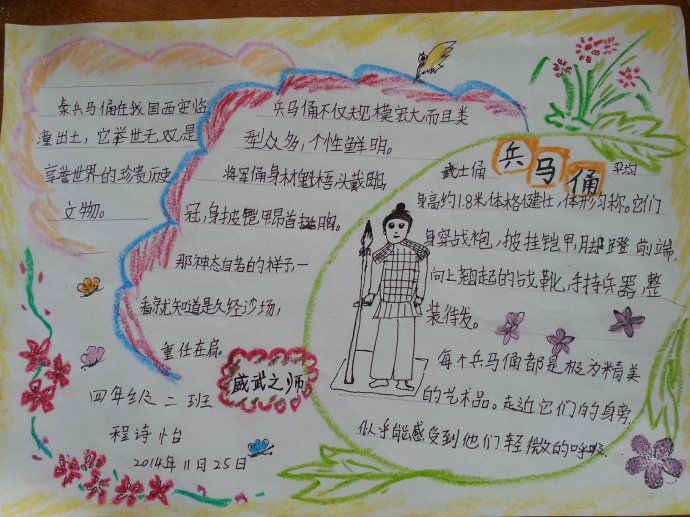 秦兵马俑在我国西安临
潼出土，它举世无双是
享誉世界的珍贵历史
文物。
兵马俑不仅规模宏大而且类
型众多，个性鲜明。
将军俑身材魁梧头戴鹖
冠，身披铠甲昂首挺胸。
那神态自若的样子一
看就知道是久经沙场，
重任在肩。
威武之师
四年级二班
程诗怡
2014年11月25日
兵马俑
武士俑 平均
身高约1.8米，体格健壮，体形匀称。它们
身穿战袍，披挂铠甲，脚蹬前端
向上翘起的战靴，手持兵器，整
装待发。
每个兵马俑都是极为精美
的艺术品。走近它们的身旁，
似乎能感受到他们轻微的呼吸